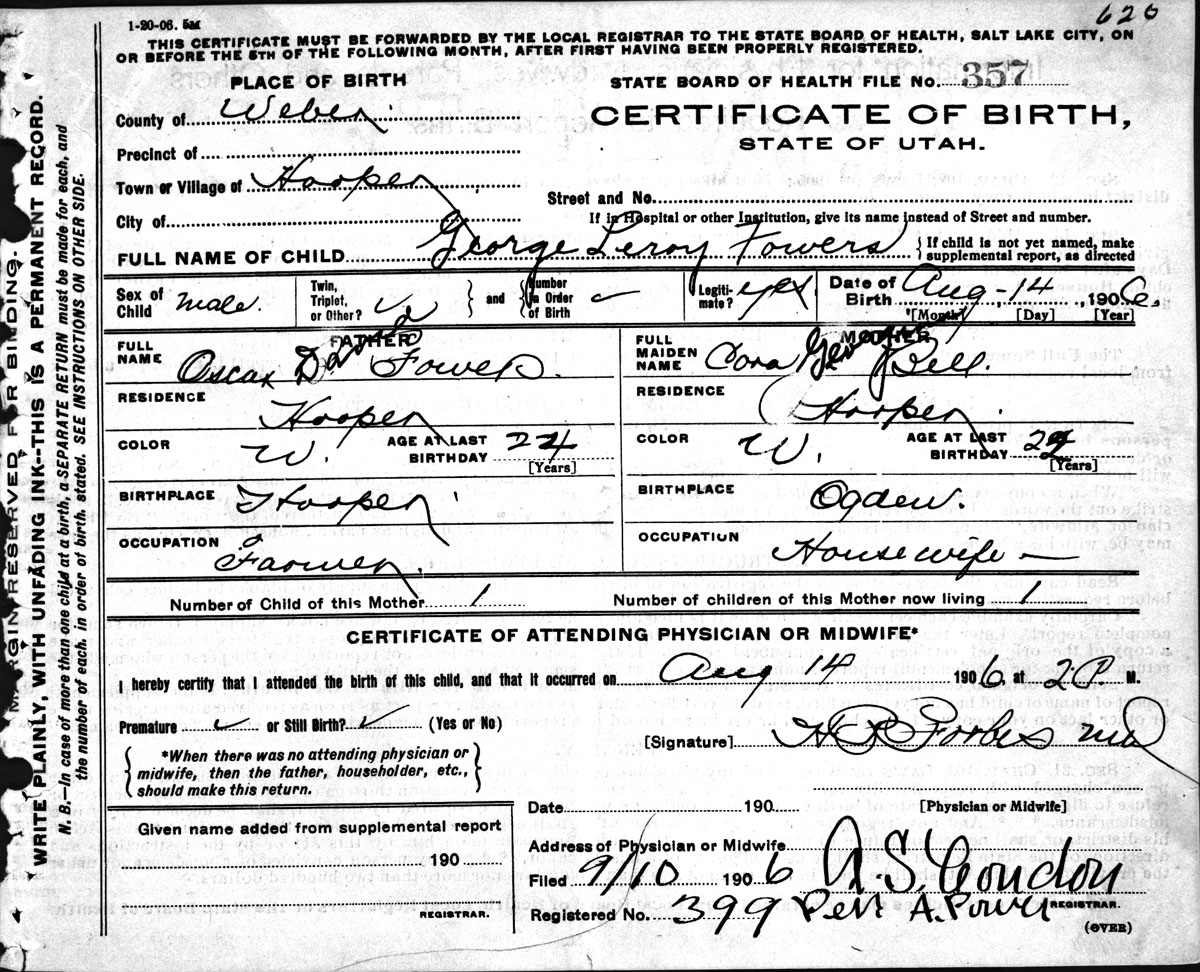 1-20-06. 5M
626
THIS CERTIFICATE MUST BE FORWARDED BY THE LOCAL REGISTRAR TO THE STATE BOARD OF HEALTH, SALT LAKE CITY, ON
OR BEFORE THE 5TH OF THE FOLLOWING MONTH, AFTER FIRST HAVING BEEN PROPERLY REGISTERED.
PLACE OF BIRTH
STATE BOARD OF HEALTH FILE No. 357
County of Weber
CERTIFICATE OF BIRTH,
STATE OF UTAH.
Precinct of
Town or Village of Hooper
Street and No.
City of
If in Hospital or other Institution, give its name instead of Street and number.
FULL NAME OF CHILD George Leroy Fowers
If child is not yet named, make supplemental report, as directed
Sex of Child male.
Twin, Triplet, or Other?
and
Number in Order of Birth
Legitimate? yes
Date of Birth Aug-14, 1906.
[Month] [Day] [Year]
FATHER
FULL NAME Oscar Fowers.
RESIDENCE Hooper
COLOR W.
AGE AT LAST BIRTHDAY 24
[Years]
BIRTHPLACE Hooper
OCCUPATION Farmer.
MOTHER
FULL MAIDEN NAME Cora Bell.
RESIDENCE Hooper
COLOR W.
AGE AT LAST BIRTHDAY
[Years]
BIRTHPLACE Ogden.
OCCUPATION Housewife —
Number of Child of this Mother 1
Number of children of this Mother now living 1
CERTIFICATE OF ATTENDING PHYSICIAN OR MIDWIFE*
I hereby certify that I attended the birth of this child, and that it occurred on Aug 14 1906 at 2 P M.
Premature or Still Birth? (Yes or No)
[Signature] H R Forbes MD
*When there was no attending physician or
midwife, then the father, householder, etc.,
should make this return.
[Physician or Midwife]
Date 190
Given name added from supplemental report
190
REGISTRAR.
Address of Physician or Midwife
Filed 9/10 1906
A. S. Condon
REGISTRAR.
Registered No. 399
A. Power
(OVER)
MARGIN RESERVED FOR BINDING.
WRITE PLAINLY, WITH UNFADING INK--THIS IS A PERMANENT RECORD.
N. B.—In case of more than one child at a birth, a SEPARATE RETURN must be made for each, and
the number of each, in order of birth, stated. SEE INSTRUCTIONS ON OTHER SIDE.